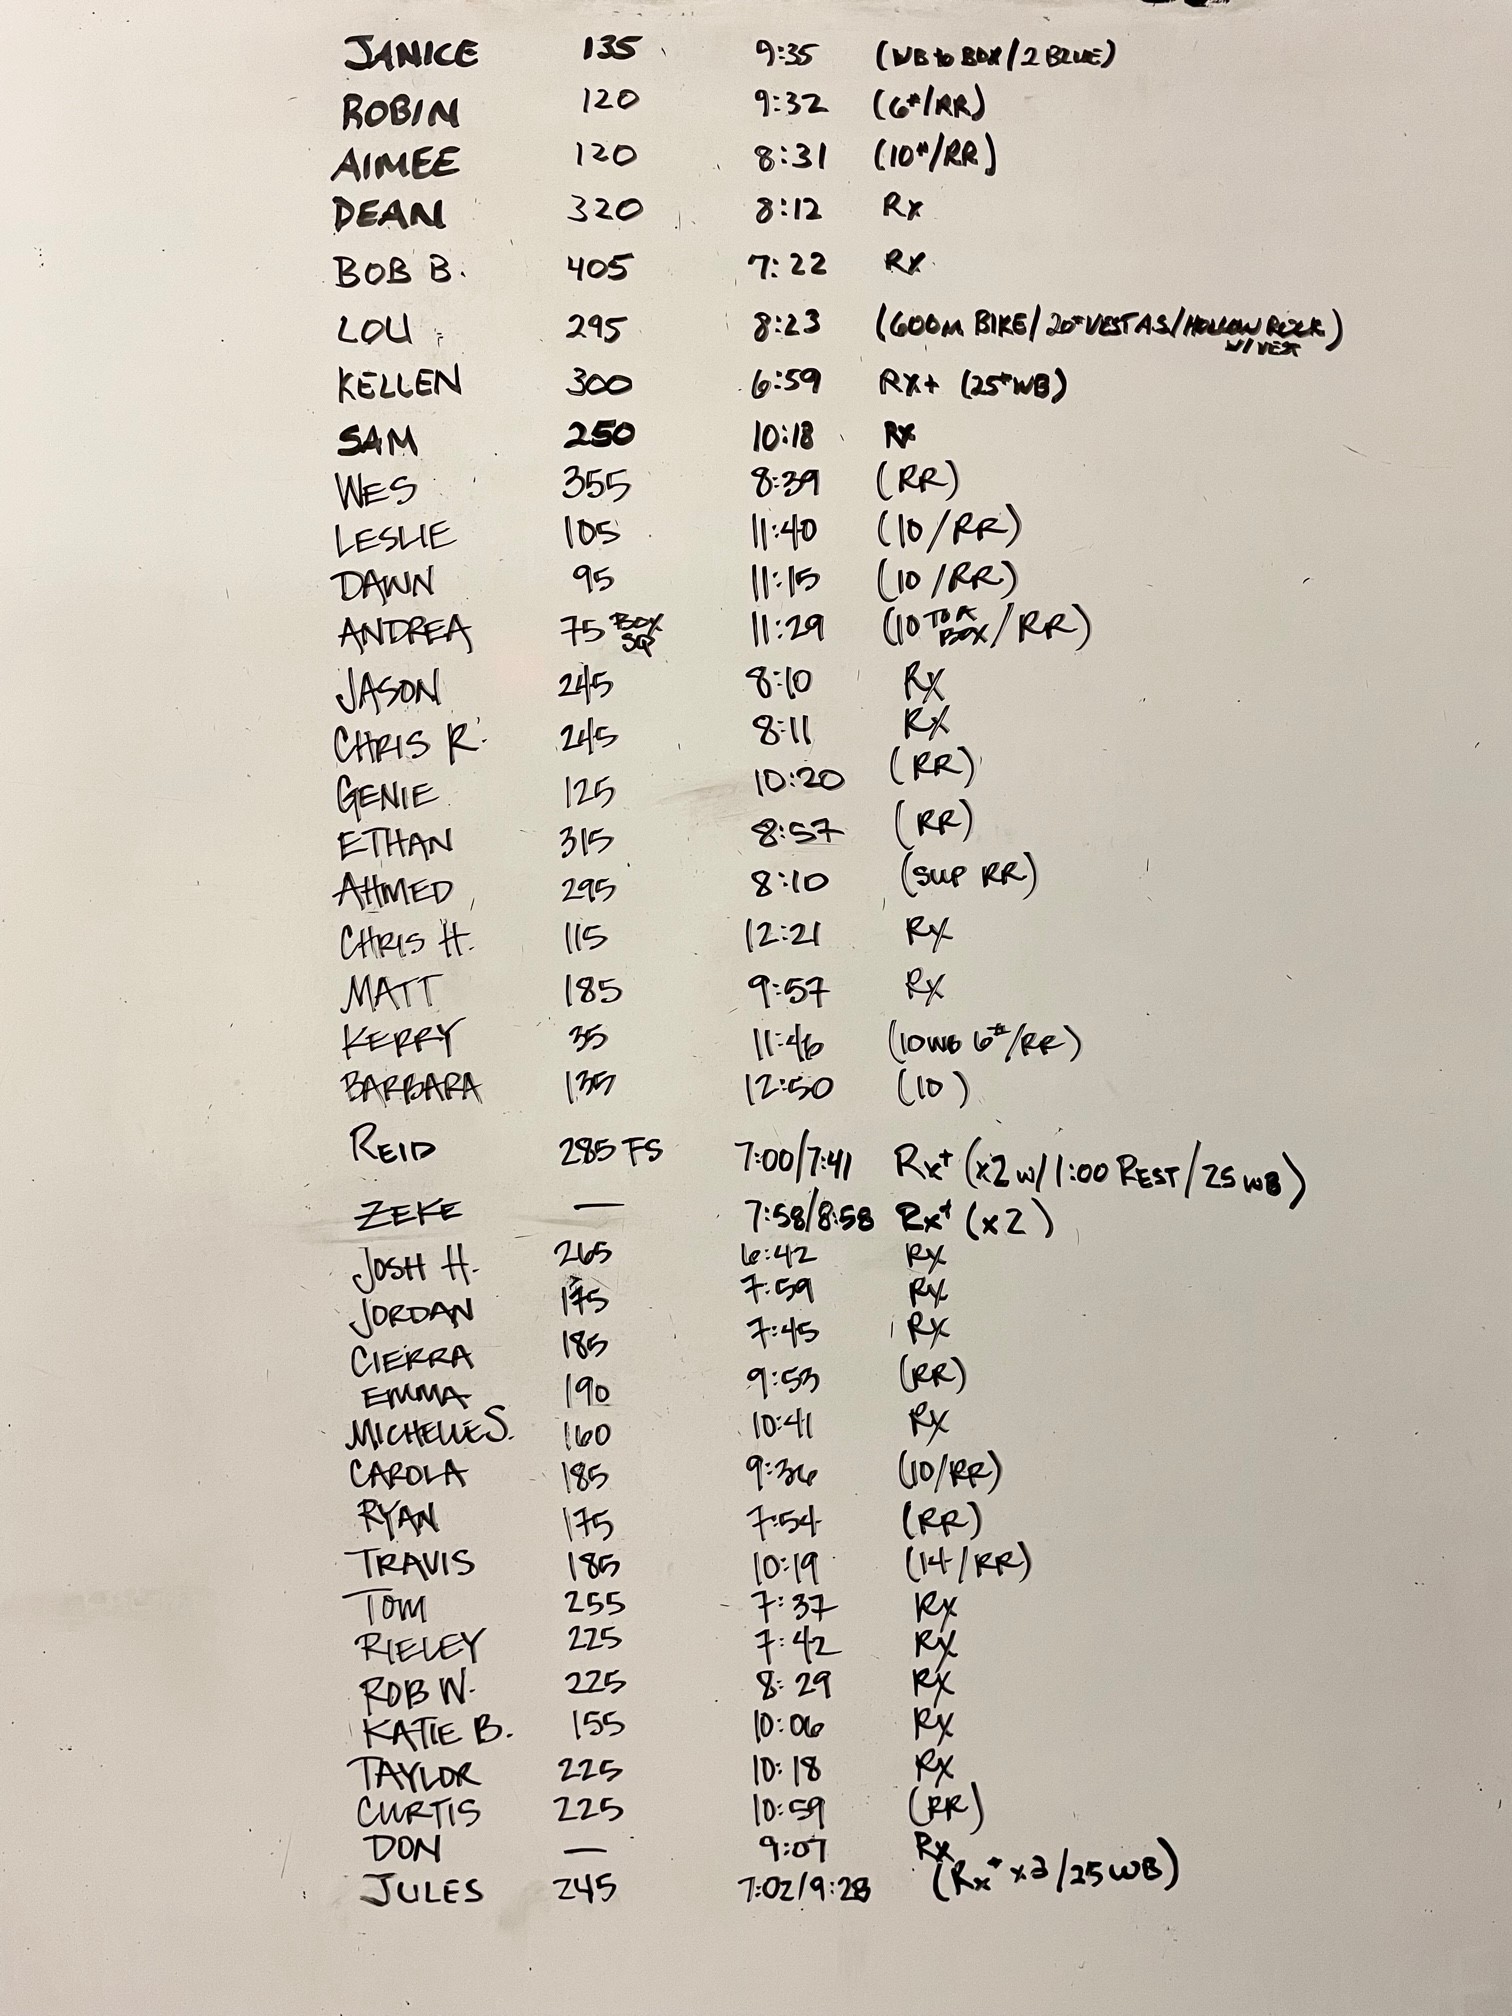 JANICE 135 9:35 (WB to BOX/2 BLUE)
ROBIN 120 9:32 (6#/RR)
AIMEE 120 8:31 (10#/RR)
DEAN 320 8:12 Rx
BOB B. 405 7:22 Rx
LOU 295 8:23 (600m BIKE/20# VEST AS/HOLLOW ROCK W/VEST)
KELLEN 300 6:59 Rx+ (25# WB)
SAM 250 10:18 Rx
WES 355 8:39 (RR)
LESLIE 105 11:40 (10/RR)
DAWN 95 11:15 (10/RR)
ANDREA 75 BOX SQ 11:29 (10 TO A BOX/RR)
JASON 245 8:10 Rx
CHRIS R. 245 8:11 Rx
GENIE 125 10:20 (RR)
ETHAN 315 8:57 (RR)
AHMED 295 8:10 (SUP RR)
CHRIS H. 115 12:21 Rx
MATT 185 9:57 Rx
KERRY 35 11:46 (10WB 6#/RR)
BARBARA 135 12:50 (10)
REID 285 FS 7:00/7:41 Rx+ (x2 w/1:00 REST/25 WB)
ZEKE — 7:58/8:58 Rx+ (x2)
JOSH H. 265 6:42 Rx
JORDAN 175 7:59 Rx
CIERRA 185 7:45 Rx
EMMA 190 9:53 (RR)
MICHELLE S. 160 10:41 Rx
CAROLA 185 9:36 (10/RR)
RYAN 175 7:54 (RR)
TRAVIS 185 10:19 (14/RR)
TOM 255 7:37 Rx
RIELEY 225 7:42 Rx
ROB W. 225 8:29 Rx
KATIE B. 155 10:06 Rx
TAYLOR 225 10:18 Rx
CURTIS 225 10:59 (RR)
DON — 9:07 Rx
JULES 245 7:02/9:28 (Rx+ x2/25 WB)